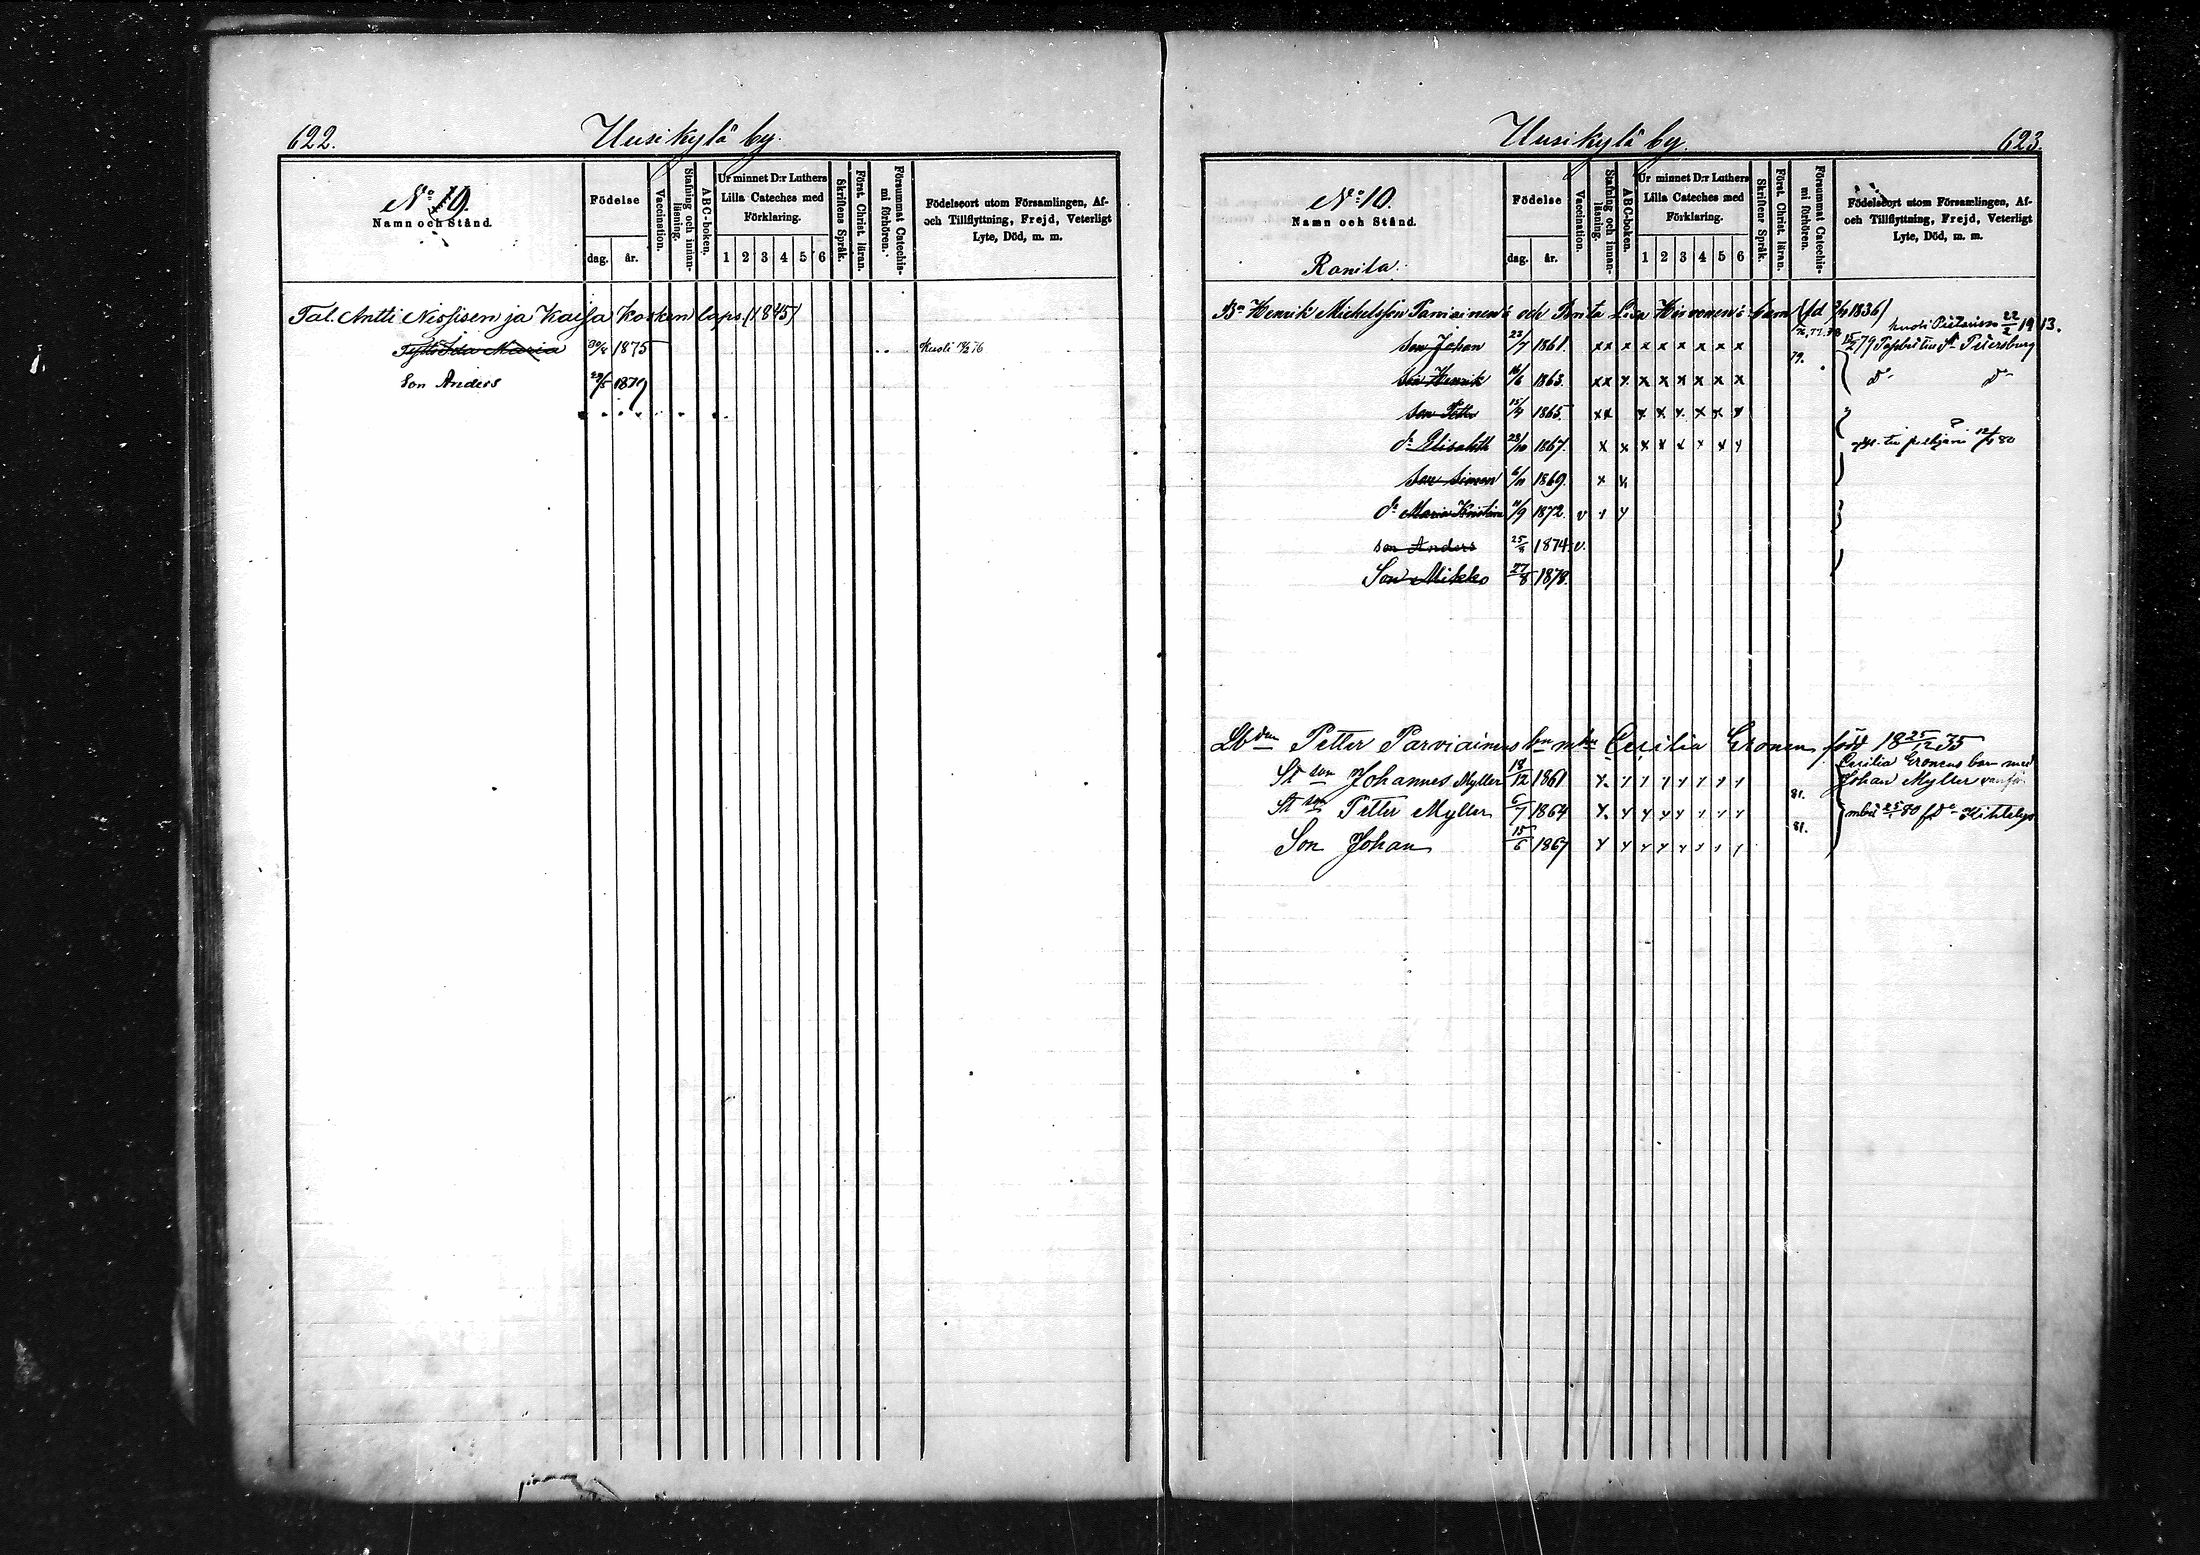 622.
Uusikylä by.
No 10.
Namn och Stånd.
Födelse
dag.
år.
Vaccination.
Stafning och innan-läsning.
ABC-boken.
Ur minnet D:r Luthers
Lilla Cateches med
Förklaring.
1 2 3 4 5 6
Skriftens Språk.
Först. Christ. läran.
Försummat Catechis-mi förhören.
Födelseort utom Församlingen, Af-
och Tillflyttning, Frejd, Veterligt
Lyte, Död, m. m.
Tal. Antti Nissisen ja Kaisa Kosken laps. (1845)
Tyttö Ida Maria 30/8 1875 Kuoli 76
Son Anders 29/5 1879
Uusikylä by.
623.
No 10.
Namn och Stånd.
Ranita.
Födelse
dag.
år.
Vaccination.
Stafning och innan-läsning.
ABC-boken.
Ur minnet D:r Luthers
Lilla Cateches med
Förklaring.
1 2 3 4 5 6
Skriftens Språk.
Först. Christ. läran.
Försummat Catechis-mi förhören.
Födelseort utom Församlingen, Af-
och Tillflyttning, Frejd, Veterligt
Lyte, Död, m. m.
Bn Henrik Michelsson Parviainens och Anita Lisa Hirvonens barn (fd 1836)
kuoli Pietarissa 22/2 1913.
son Johan 22/7 1861. x x x x x x x x x 76, 77, 78 79 Passbet till St Petersburg
son Henrik 16/6 1863. x x x x x x x x x 79. do do
son Petter 15/4 1865. x x x x x x x x
dr Elisabeth 23/10 1867. x x x x x x x x 12/4 80
son Simon 6/11 1869. x x
dr Maria Kristina 11/9 1872. v x x
son Anders 25/8 1874. v.
Son Mikko 27/8 1878.
Petter Parviainens Cecilia Eronen född 18 25/12 35
Cecilia Eronens barn med
St son Johannes Myller 18/12 1861 x x x x x x x x 81. Johan Myller
St son Petter Myller 6/7 1864 x x x x x x x x 81. 25 80 Kihtelys
Son Johan 15/6 1867 x x x x x x x x